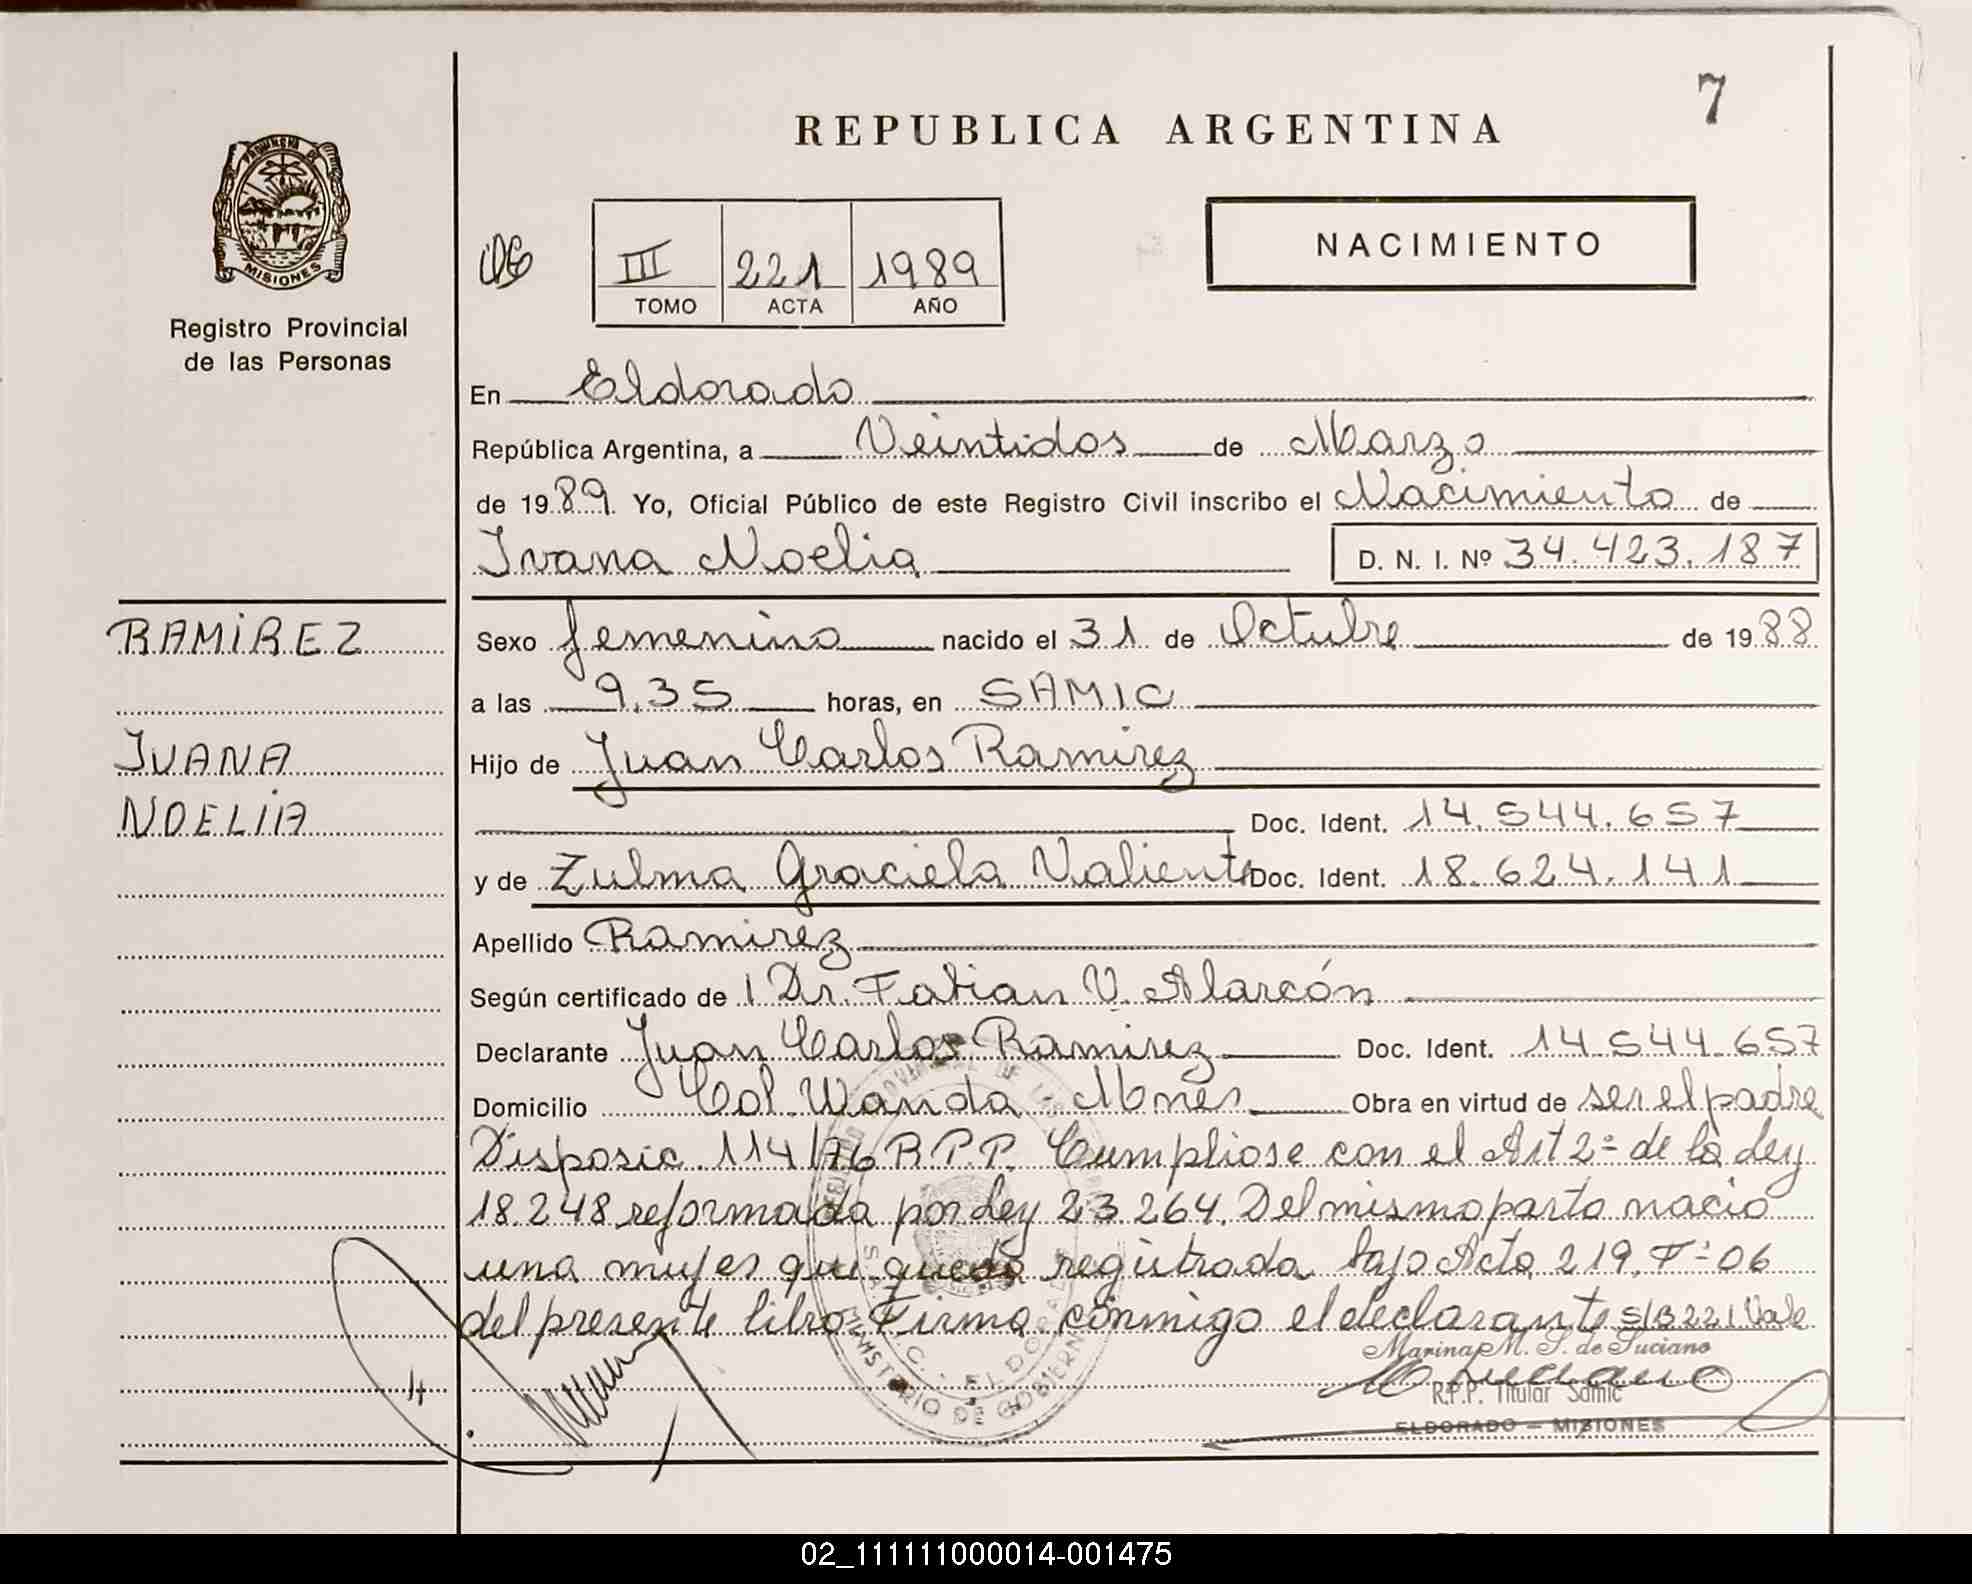 7
REPUBLICA ARGENTINA
PROVINCIA DE
MISIONES
Registro Provincial
de las Personas
III 221 1989
TOMO ACTA AÑO
NACIMIENTO
En Eldorado
República Argentina, a Veintidos de Marzo
de 1989. Yo, Oficial Público de este Registro Civil inscribo el Nacimiento de
Ivana Noelia D. N. I. Nº 34.423.187
RAMIREZ
IVANA
NOELIA
Sexo femenino nacido el 31 de Octubre de 1988
a las 9.35 horas, en SAMIC
Hijo de Juan Carlos Ramirez
Doc. Ident. 14.544.657
y de Zulma Graciela Valiente Doc. Ident. 18.624.141
Apellido Ramirez
Según certificado de Dr. Fabian V. Alarcón
Declarante Juan Carlos Ramirez Doc. Ident. 14.544.657
Domicilio Col. Wanda - Mnes Obra en virtud de ser el padre
Disposic. 114/76 R.P.P. Cumpliose con el Art 2º de la Ley
18.248 reformada por Ley 23.264. Del mismo parto nacio
una mujer que quedó registrada bajo Acta 219. Fº 06
del presente libro. Firma conmigo el declarante S/B 221 Vale
Marina M. S. de Luciano
R.P.P. Titular Samic
ELDORADO — MISIONES
MINISTERIO DE GOBIERNO
ELDORADO
02_111111000014-001475